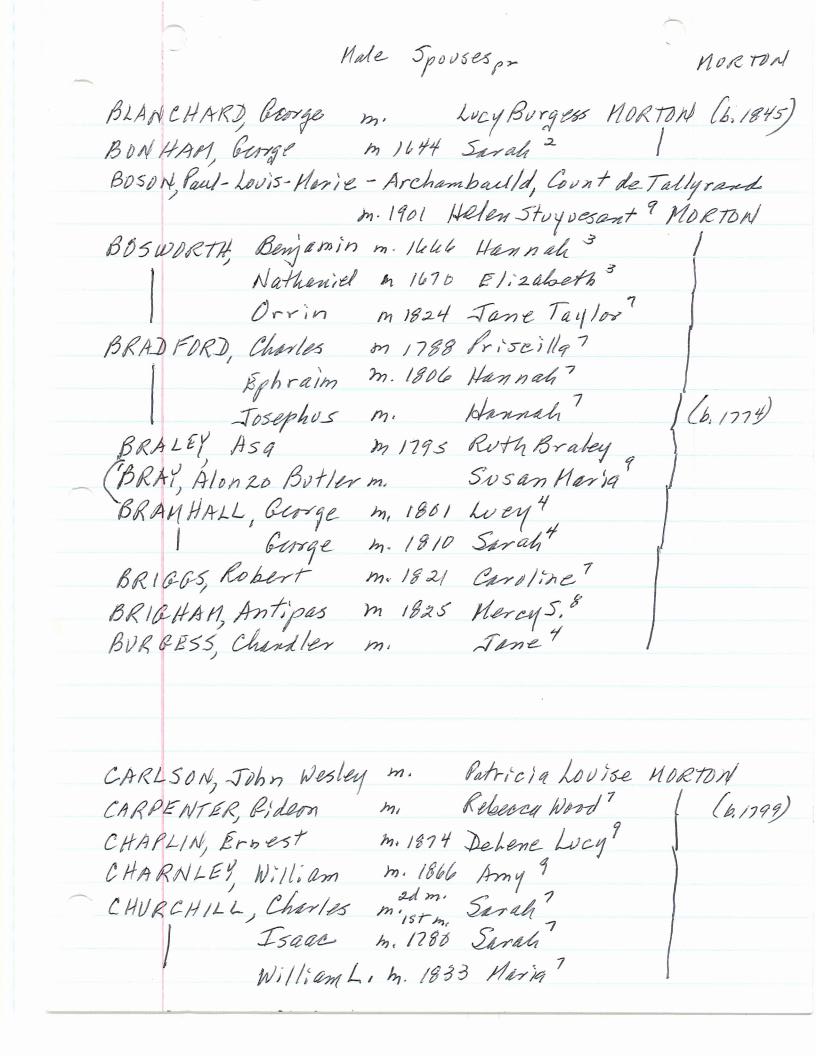 Male Spouses pr MORTON
BLANCHARD, George m. Lucy Burgess MORTON (b. 1845)
BONHAM, George m 1644 Sarah 2
BOSON, Paul-Louis-Marie - Archambauld, Count de Tallyrand
m. 1901 Helen Stuyvesant 9 MORTON
BOSWORTH, Benjamin m. 1666 Hannah 3
Nathaniel m 1670 Elizabeth 3
Orrin m 1824 Jane Taylor 7
BRADFORD, Charles m 1788 Priscilla 7
Ephraim m. 1806 Hannah 7
Josephus m. Hannah 7 (b. 1774)
BRALEY, Asa m 1795 Ruth Braley
(BRAY, Alonzo Butler m. Susan Maria 9
BRAMHALL, George m. 1801 Lucy 4
George m. 1810 Sarah 4
BRIGGS, Robert m. 1821 Caroline 7
BRIGHAM, Antipas m 1825 Mercy S. 8
BURGESS, Chandler m. Jane 4
CARLSON, John Wesley m. Patricia Louise MORTON
CARPENTER, Gideon m. Rebecca Wood 7 (b. 1799)
CHAPLIN, Ernest m. 1874 Delene Lucy 9
CHARNLEY, William m. 1866 Amy 9
CHURCHILL, Charles m. 2d m. Sarah 7
Isaac 1st m. m. 1780 Sarah 7
William L. m. 1833 Maria 7